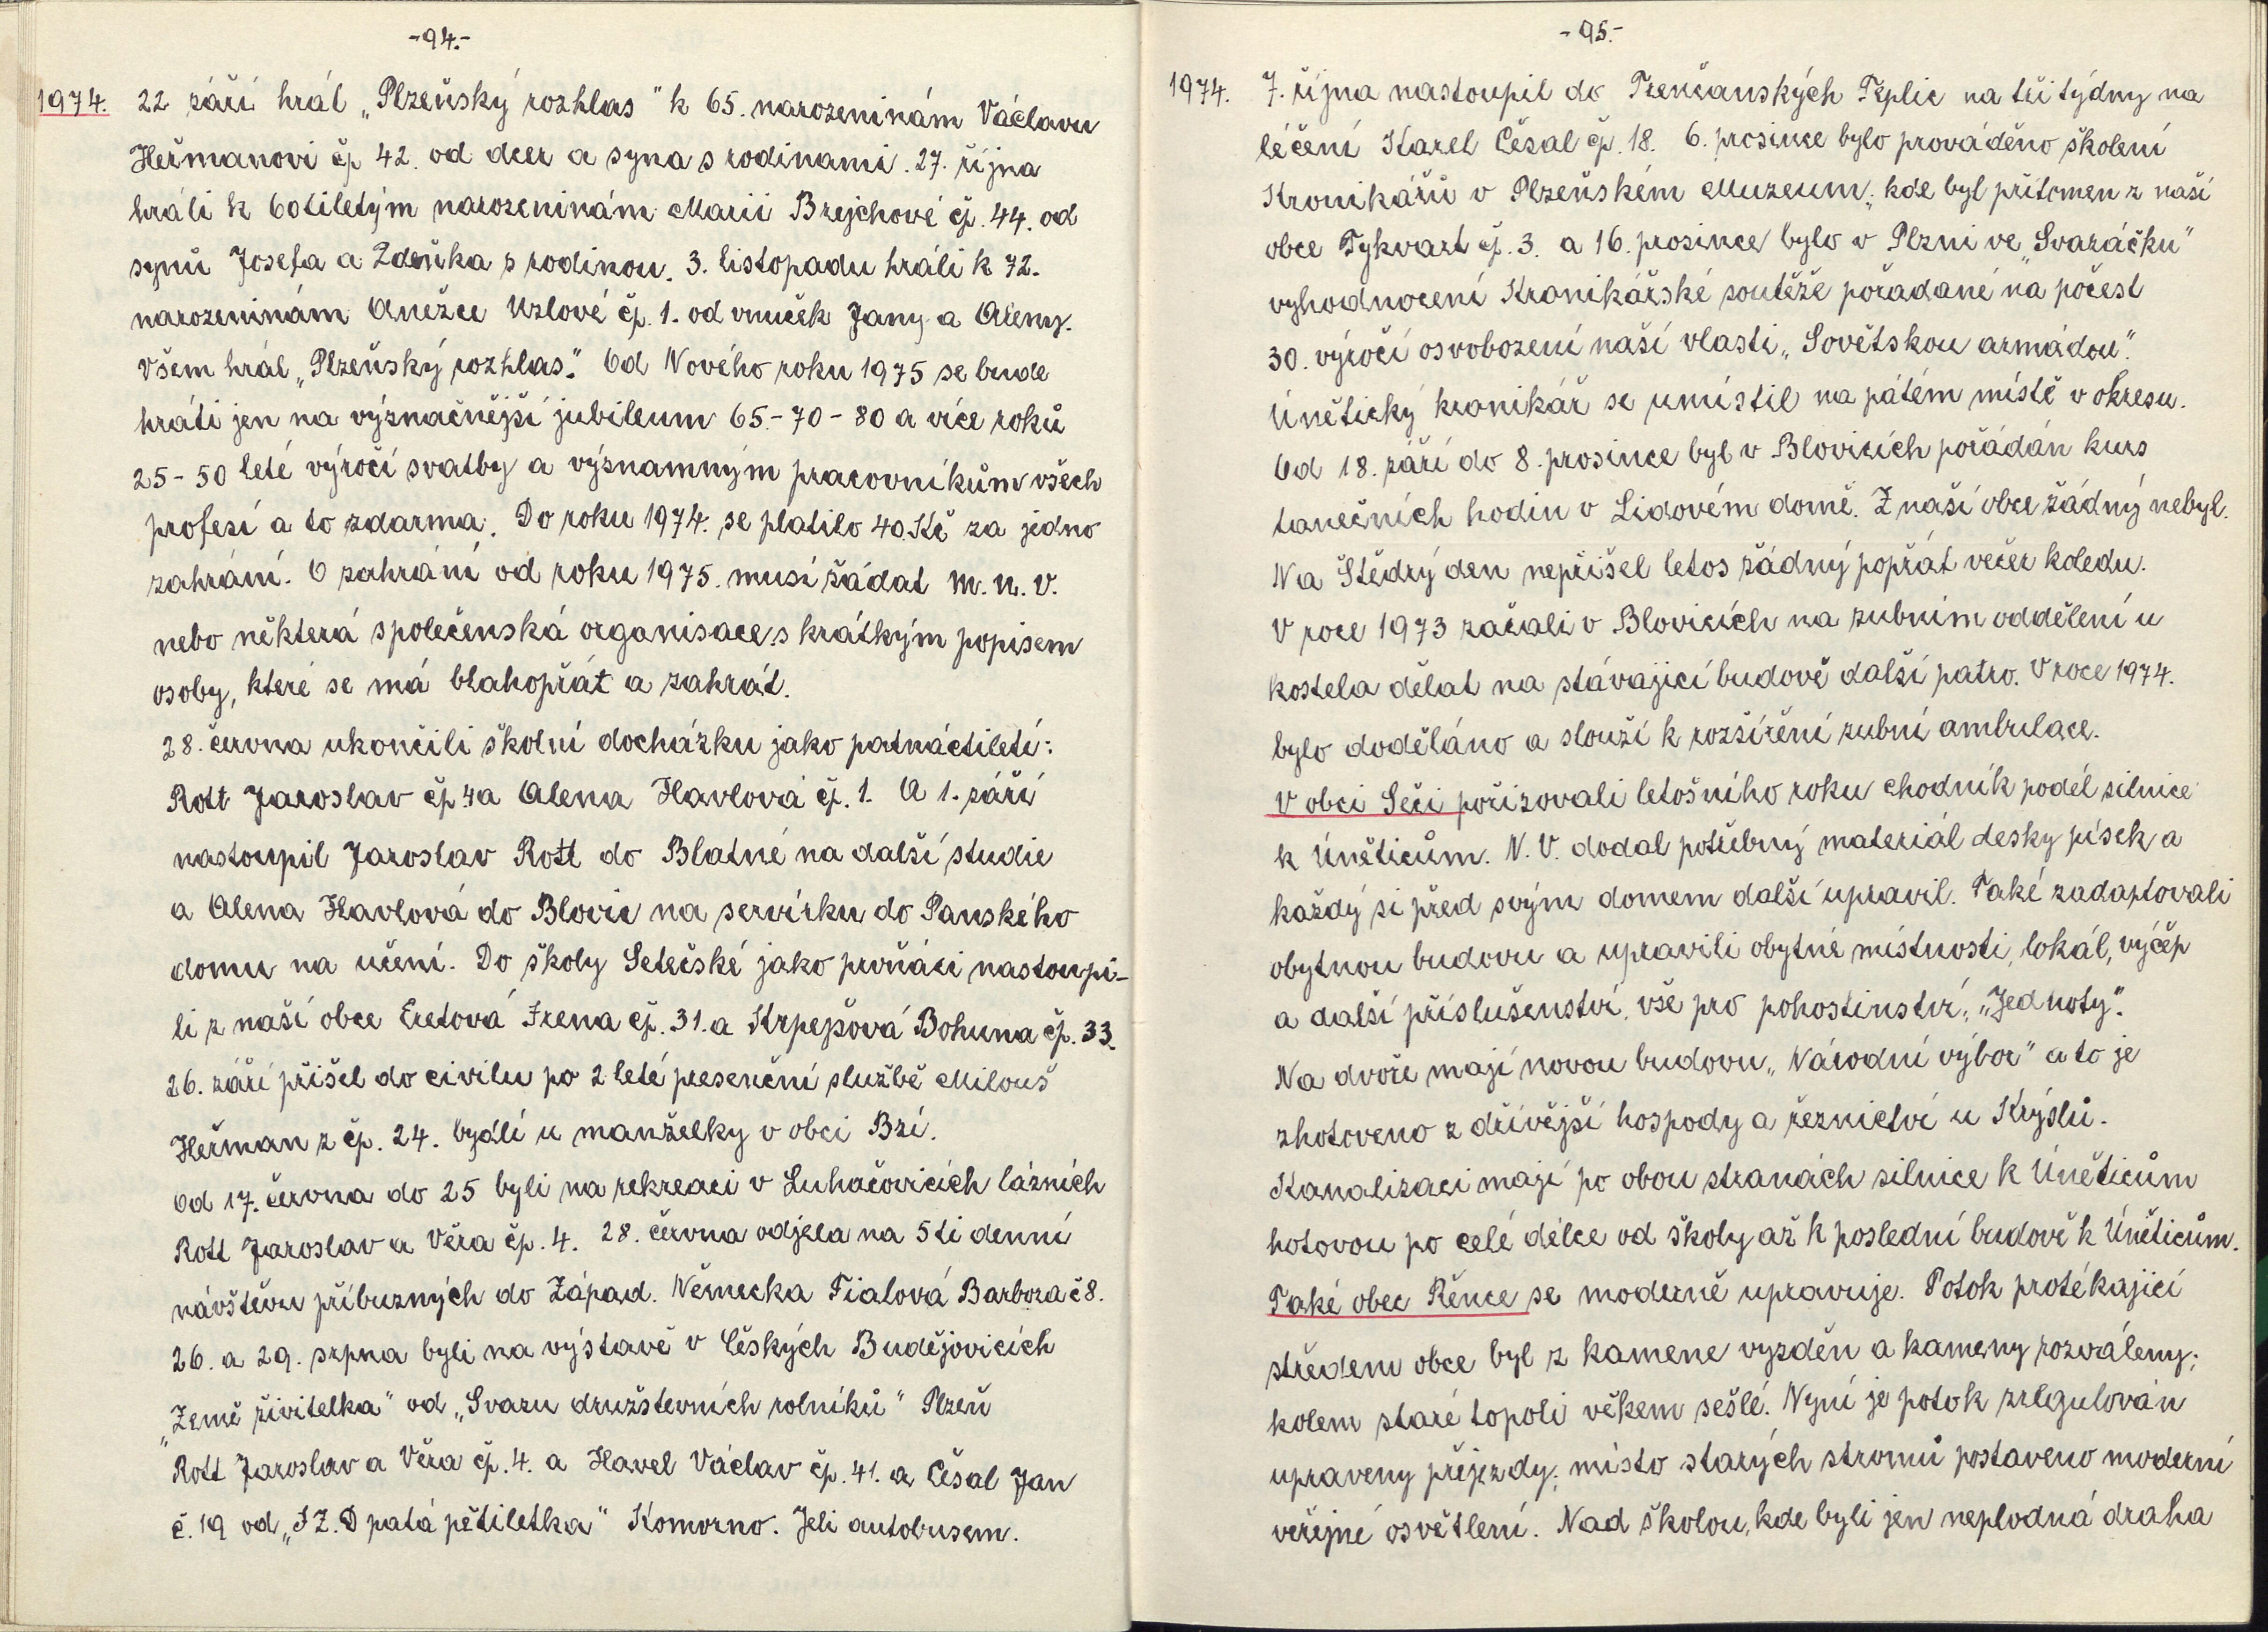 -94.-
1974. 22 září hrál „Plzeňský rozhlas" k 65. narozeninám Václavu
Heřmanovi čp 42. od dcer a syna s rodinami. 27. října
hráli k 60tiletým narozeninám Marii Brejchové čp. 44. od
synů Josefa a Zdeňka s rodinou. 3. listopadu hráli k 72.
narozeninám Anežce Uzlové čp. 1. od vnuček Jany a Aleny.
Všem hrál „Plzeňský rozhlas." Od Nového roku 1975 se bude
hráti jen na význačnější jubileum 65-70-80 a více roků
25-50 leté výročí svatby a významným pracovníkům všech
profesí a to zdarma. Do roku 1974. se platilo 40.Kč za jedno
zahrání. O zahrání od roku 1975. musí žádat m. n. v.
nebo některá společenská organisace s krátkým popisem
osoby, které se má blahopřát a zahrát.
28. června ukončili školní docházku jako patnáctiletí:
Rott Jaroslav čp 4 a Alena Havlová čp. 1. A 1. září
nastoupil Jaroslav Rott do Blatné na další studie
a Alena Havlová do Blovic na servírku do Panského
domu na učení. Do školy Setečské jako prvňáci nastoupi-
li z naší obce Eretová Irena čp. 31. a Krpejšová Bohuna čp. 33.
26. září přišel do civilu po 2 leté presenční službě Milouš
Heřman z čp. 24. bydlí u manželky v obci Bzí.
Od 17. června do 25 byli na rekreaci v Luhačovicích lázních
Rott Jaroslav a Věra čp. 4. 28. června odjela na 5ti denní
návštěvu příbuzných do Západ. Německa Fialová Barbora č 8.
26. a 29. srpna byli na výstavě v Českých Budějovicích
„Země živitelka" od „Svazu družstevních rolníků" Plzeň
Rott Jaroslav a Věra čp. 4. a Havel Václav čp. 41. a Češal Jan
č. 19 od „JZ.D patá pětiletka" Komorno. Jeli autobusem.
-95.-
1974. 7. října nastoupil do Trenčanských Teplic na tři týdny na
léčení Karel Češal čp. 18. 6. prosince bylo prováděno školení
Kronikářů v Plzeňském Muzeum, kde byl přítomen z naší
obce Tykvart čp. 3. a 16. prosince bylo v Plzni ve „Svazáčku"
vyhodnocení Kronikářské soutěže pořádané na počest
30. výročí osvobození naší vlasti „Sovětskou armádou".
Únětický kronikář se umístil na pátém místě v okresu.
Od 18. září do 8. prosince byl v Blovicích pořádán kurs
tanečních hodin v Lidovém domě. Z naší obce žádný nebyl.
Na Štědrý den nepřišel letos žádný popřát večer koledu.
V roce 1973 začali v Blovicích na zubním oddělení u
kostela dělat na stávající budově další patro. V roce 1974.
bylo doděláno a slouží k rozšíření zubní ambulace.
V obci Seči pořizovali letošního roku chodník podél silnice
k Úněticům. N. V. dodal potřebný materiál desky písek a
každý si před svým domem další upravil. Také zadaptovali
obytnou budovu a upravili obytné místnosti, lokál, výčep
a další příslušenství, vše pro pohostinství, „Jednoty".
Na dvoře mají novou budovu „Národní výbor" a to je
zhotoveno z dřívější hospody a řeznictví u Krýslů.
Kanalizaci mají po obou stranách silnice k Úněticům
hotovou po celé délce od školy až k poslední budově k Úněticům.
Také obec Řence se moderně upravuje. Potok protékající
středem obce byl z kamene vyzděn a kameny rozváleny;
kolem staré topoli věkem sešlé. Nyní je potok zregulován
upraveny přejezdy; místo starých stromů postaveno moderní
veřejné osvětlení. Nad školou, kde byli jen neplodná draha